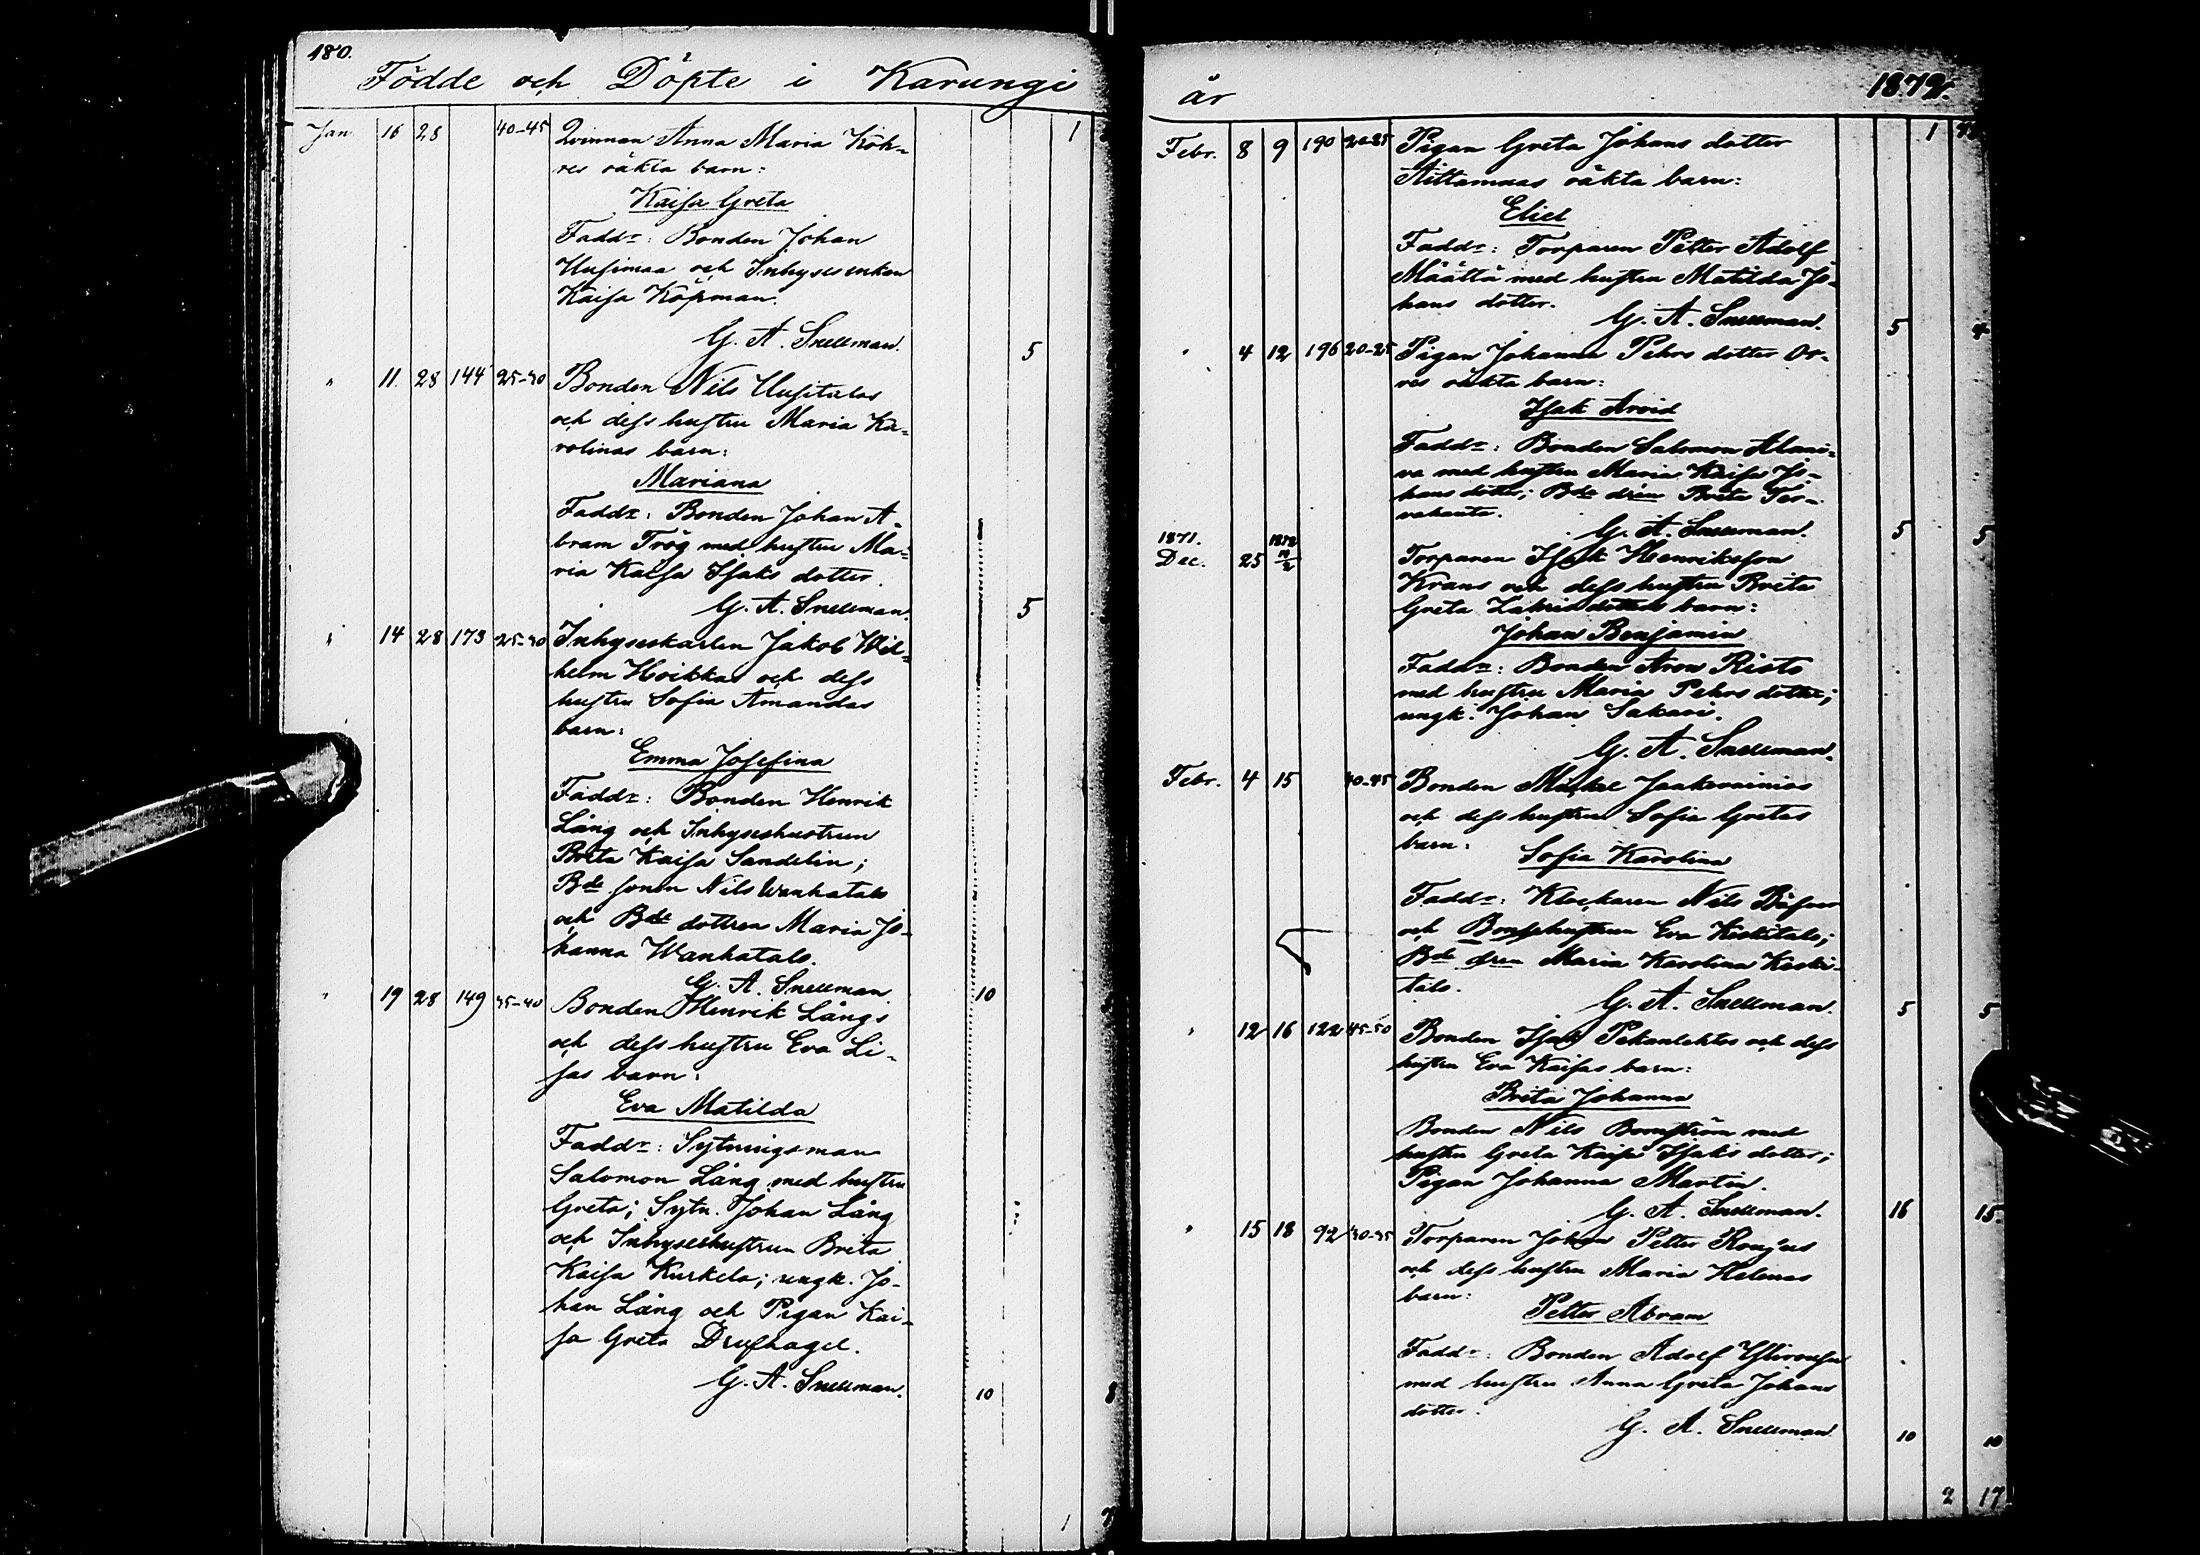 180.
Födde och Döpte i Karungi
Jan 16 28 40-45 Qvinnan Anna Maria Köh-
res oäkta barn: 1
Kaisa Greta
Fadd.r: Bonden Johan
Uusimaa och Inhyses enkan
Kaisa Köpman.
G. A. Snellman. 5
" 11. 28 144 25-30 Bonden Nils Uusitalos
och dess hustru Maria Ka-
rolinas barn:
Mariana
Fadd.r: Bonden Johan A-
bram Trög med hustru Ma-
ria Kaisa Isaks dotter.
G. A. Snellman. 5
" 14 28 173 25-30 Inhyseskarlen Jakob Wil-
helm Hoikkas och dess
hustru Sofia Amandas
barn:
Emma Josefina
Fadd.r: Bonden Henrik
Lång och Inhyseshustrun
Brita Kaisa Sandelin;
Bde sonen Nils Wanhatalo
och Bde dottren Maria Jo-
hanna Wanhatalo.
G. A. Snellman. 10
" 19 28 149 35-40 Bonden Henrik Långs
och dess hustru Eva Li-
sas barn:
Eva Matilda
Fadd.r: Sytningsman
Salomon Lång med hustru
Greta; Sytn. Johan Lång
och Inhyseshustrun Brita
Kaisa Kurkela; ungk. Jo-
han Lång och Pigan Kai-
sa Greta Drufhagel.
G. A. Snellman. 10 8
1
år 1872.
Febr. 8 9 190 20-25 Pigan Greta Johans dotter
Aittamaas oäkta barn: 1
Eliel
Fadd.r: Torparen Petter Adolf
Määttä med hustru Matilda Jo-
hans dotter.
G. A. Snellman. 5 4
" 4 12 196 20-25 Pigan Johanna Pehrs dotter Or-
res oäkta barn:
Isak Arvid
Fadd.r: Bonden Salomon Alani-
va med hustru Maria Kaisa Jo-
hans dotter; Bde drän Brita Ter-
vahauta.
G. A. Snellman. 5 5
1871. Dec. 25 1872 10/2 Torparen Isak Henriksson
Krans och dess hustru Brita
Greta Zakrisdotters barn:
Johan Benjamin
Fadd.r: Bonden Aron Risto
med hustru Maria Pehrs dotter;
ungk. Johan Sakari.
G. A. Snellman.
Febr. 4 15 40-45 Bonden Mickel Jaakovainios
och dess hustru Sofia Gretas
barn:
Sofia Karolina
Fadd.r: Klockaren Nils
och Bondehustrun Eva Keskitalo;
Bde dren Maria Karolina Keski-
talo.
G. A. Snellman. 5 5
" 12 16 122 45-50 Bonden Isak Pekanlehtos och dess
hustru Eva Kaisas barn:
Brita Johanna
Bonden Nils Bomström med
hustru Greta Kaisa Isaks dotter;
Pigan Johanna Martin.
G. A. Snellman. 16 15
" 15 18 92 30-35 Torparen Johan Petter Ronjus
och dess hustru Maria Helenas
barn:
Petter Abram
Fadd.r: Bonden Adolf
med hustru Anna Greta Johans
dotter.
G. A. Snellman. 10 10
2 17